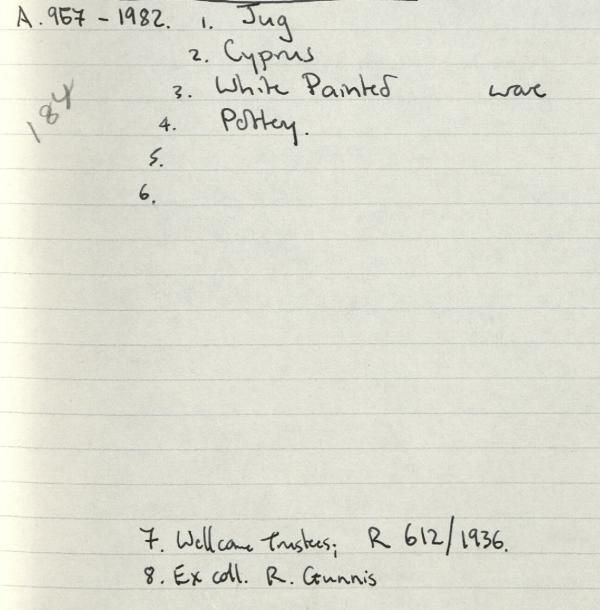 A.957 - 1982. 1. Jug
2. Cyprus
3. White Painted ware
184
4. Pottery.
5.
6.
7. Wellcome Trustees; R 612/1936.
8. Ex coll. R. Gunnis